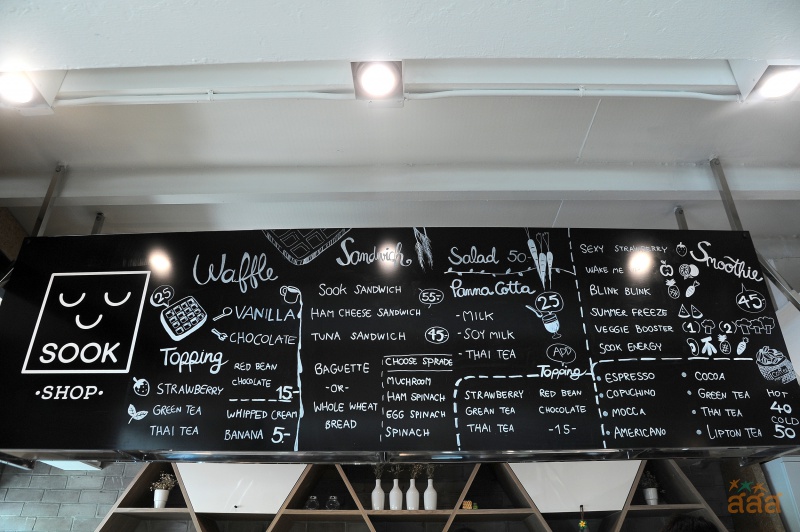 SOOK
·SHOP·
Waffle
25-
VANILLA
CHOCOLATE
Topping
STRAWBERRY
GREEN TEA
THAI TEA
RED BEAN
CHOCOLATE
15-
WHIPPED CREAM
BANANA 5-
Sandwich
SOOK SANDWICH
55-
HAM CHEESE SANDWICH
TUNA SANDWICH
45-
BAGUETTE
-OR-
WHOLE WHEAT
BREAD
CHOOSE SPRADE
MUCHROOM
HAM SPINACH
EGG SPINACH
SPINACH
Salad 50-
Panna Cotta
25
-MILK
-SOY MILK
-THAI TEA
ADD
Topping
STRAWBERRY
GREAN TEA
THAI TEA
RED BEAN
CHOCOLATE
-15-
Smoothie
SEXY STRAWBERRY
WAKE ME
BLINK BLINK
45-
SUMMER FREEZE
VEGGIE BOOSTER 1 2
SOOK ENERGY
• ESPRESSO
• COPUCHINO
• MOCCA
• AMERICANO
• COCOA
• GREEN TEA
• THAI TEA
• LIPTON TEA
HOT
40
COLD
50